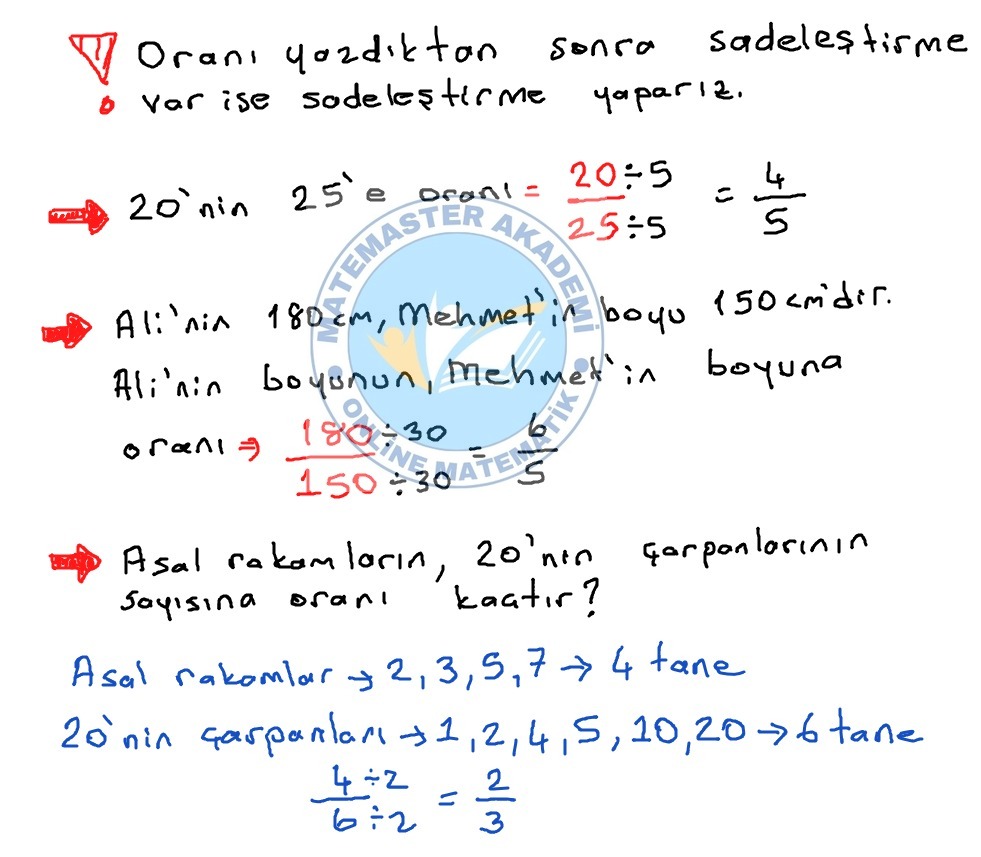 Oranı yazdıktan sonra sadeleştirme
var ise sadeleştirme yaparız.
20'nin 25'e oranı = 20÷5 / 25÷5 = 4/5
Ali'nin 180 cm, Mehmet'in boyu 150 cm'dir.
Ali'nin boyunun, Mehmet'in boyuna
oranı ⇒ 180÷30 / 150÷30 = 6/5
MATEMASTER AKADEMİ
ONLİNE MATEMATİK
Asal rakamların, 20'nin çarpanlarının
sayısına oranı kaçtır?
Asal rakamlar → 2, 3, 5, 7 → 4 tane
20'nin çarpanları → 1, 2, 4, 5, 10, 20 → 6 tane
4÷2 / 6÷2 = 2/3